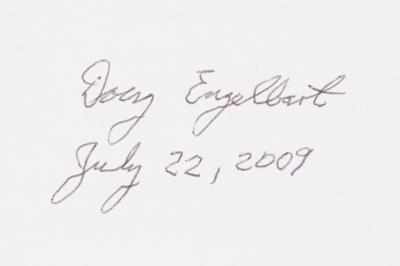 Doug Engelbart
July 22, 2009